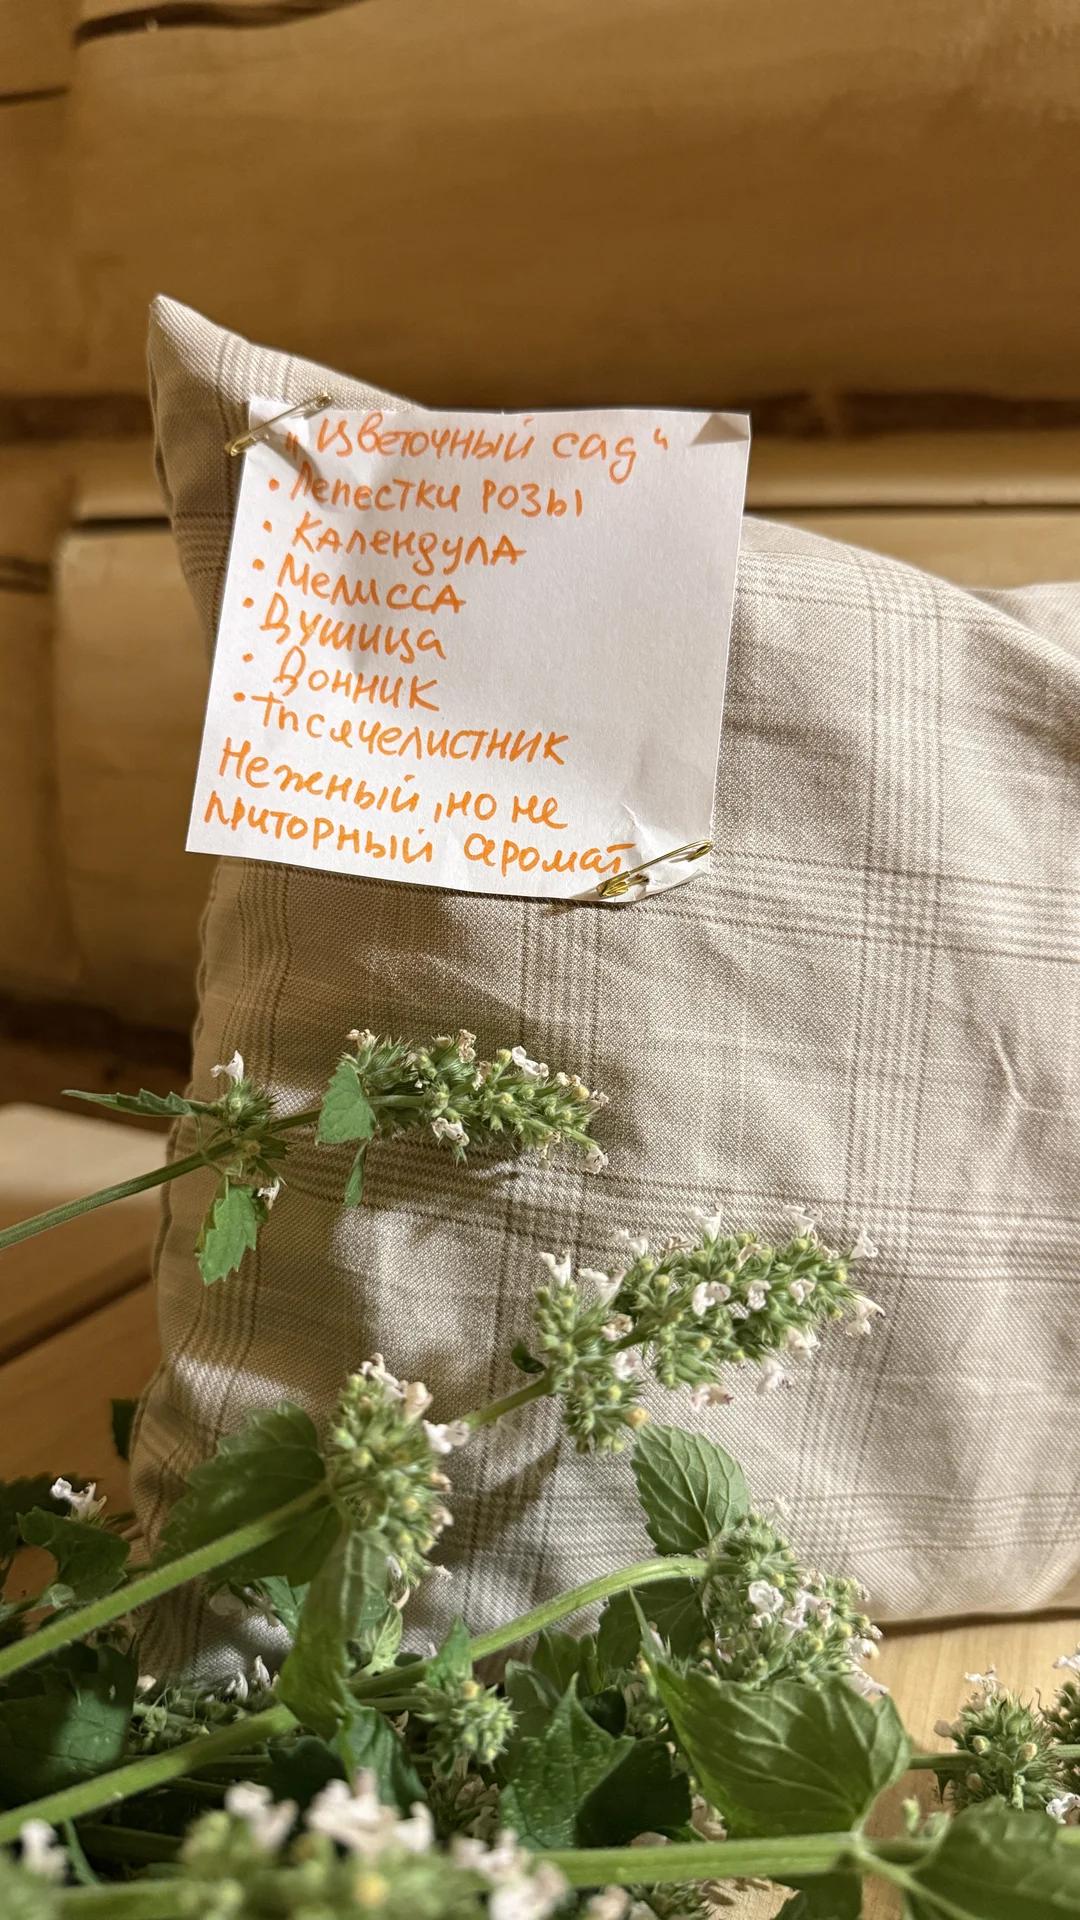 „Цветочный сад“
• Лепестки розы
• Календула
• Мелисса
• Душица
• Донник
• Тысячелистник
Нежный, но не
приторный аромат